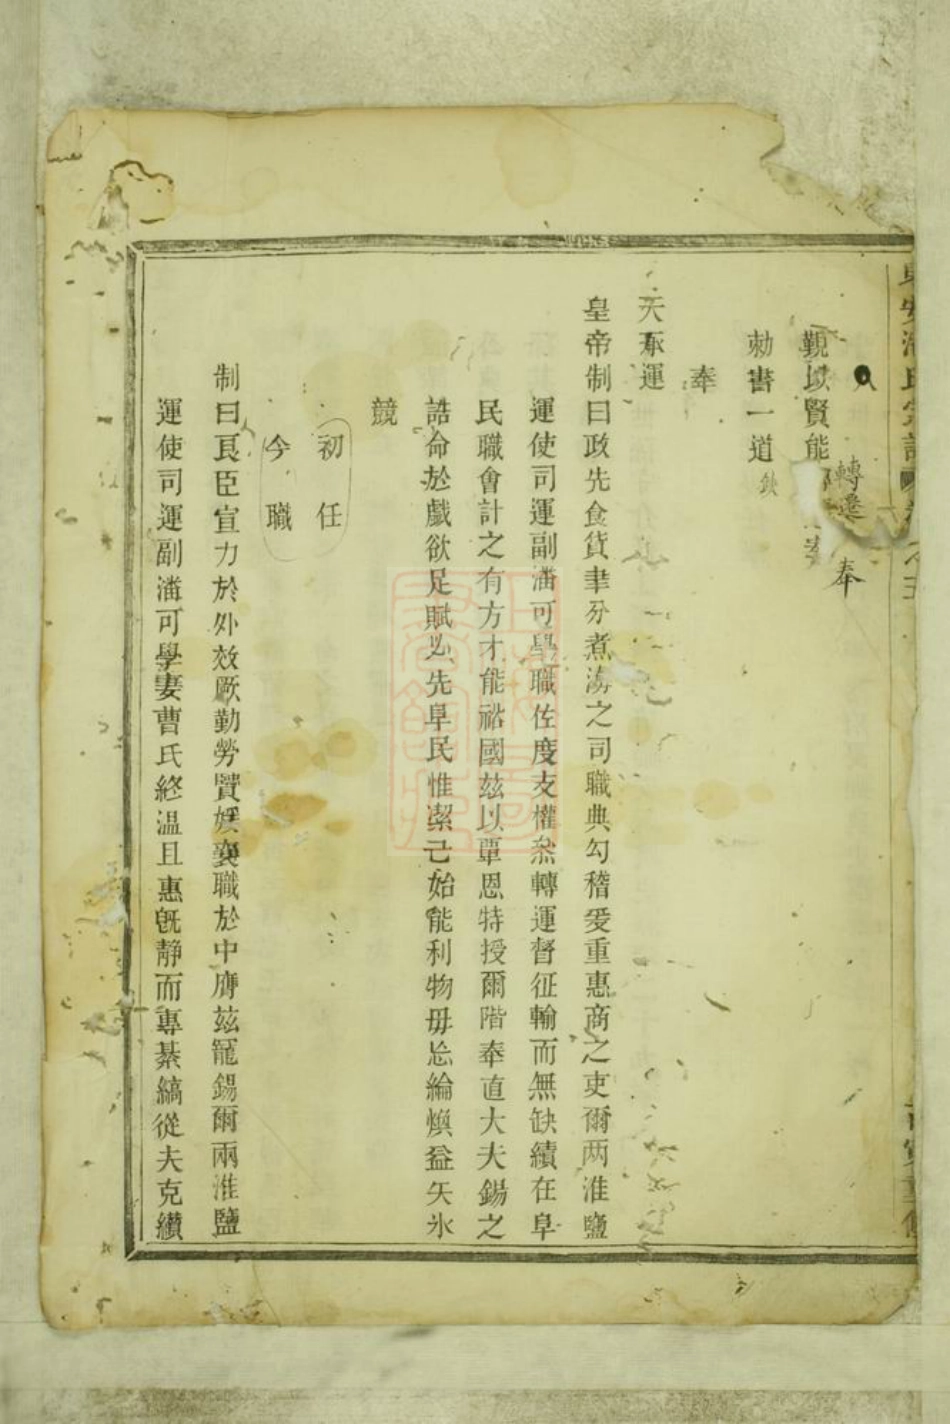 轉遷 奉
覲以賢能
勅書一道
奉
天承運
皇帝制曰政先食貨聿分煮海之司職典勾稽爰重惠商之吏爾两淮鹽
運使司運副潘可學職佐度支權叅轉運督征輸而無缺績在阜
民職會計之有方才能裕國茲以覃恩特授爾階奉直大夫錫之
誥命於戲欲足賦必先阜民惟潔己始能利物毋忘綸煥益矢氷
競
初任
今職
制曰良臣宣力於外效厥勤勞賢媛襄職於中膺茲寵錫爾兩淮鹽
運使司運副潘可學妻曹氏終温且惠旣靜而專綦縞從夫克纘